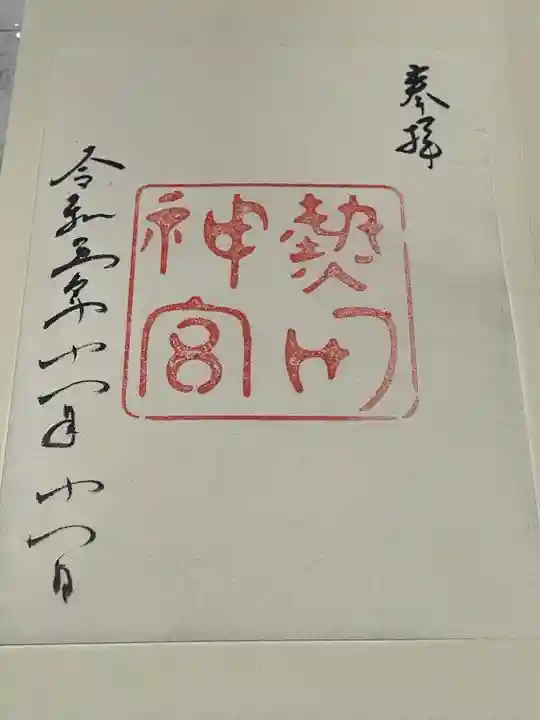 奉拝
熱田
神宮
令和五年十一月十一日